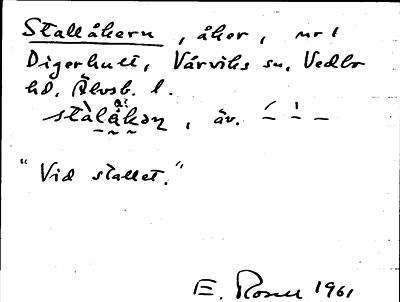 Stallåkern, åker, nr 1
Digerhult, Vårviks sn, Vedbo
hd, Älvsb. l.
, äv.
"Vid stallet."
E. Rosell 1961